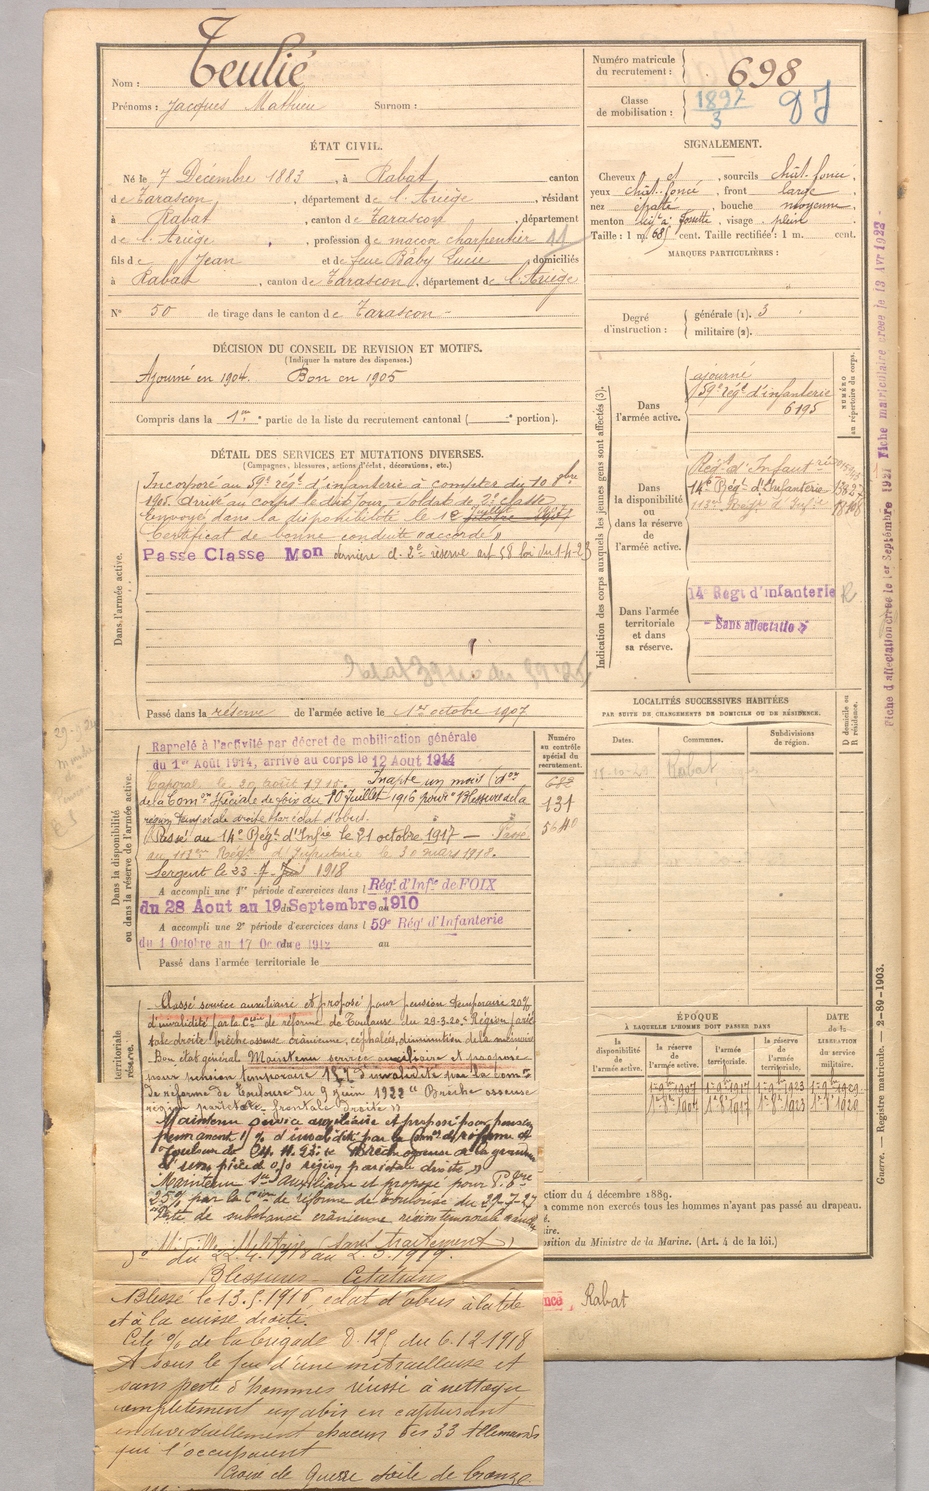 Nom : Teulié
Prénoms : Jacques Mathieu Surnom :
Numéro matricule du recrutement : 698
Classe de mobilisation : 1897 3
ÉTAT CIVIL.
Né le 7 Décembre 1883, à Rabat canton
de Tarascon, département de l'Ariège, résidant
à Rabat, canton de Tarascon, département
de l'Ariège, profession de maçon charpentier
fils de Jean et de feue Baby Lucie domiciliés
à Rabat, canton de Tarascon, département de l'Ariège
N° 50 de tirage dans le canton de Tarascon
SIGNALEMENT.
Cheveux et, sourcils chât. foncé,
yeux chât. foncé, front large
nez épaté, bouche moyenne,
menton à fossette, visage plein
Taille : 1 m. 685 cent. Taille rectifiée : 1 m. cent.
MARQUES PARTICULIÈRES :
Degré d'instruction : générale (1). 3
militaire (2).
DÉCISION DU CONSEIL DE REVISION ET MOTIFS.
(Indiquer la nature des dispenses.)
Ajourné en 1904. Bon en 1905
Compris dans la 1re partie de la liste du recrutement cantonal ( portion).
DÉTAIL DES SERVICES ET MUTATIONS DIVERSES.
(Campagnes, blessures, actions d'éclat, décorations, etc.)
Dans l'armée active.
Incorporé au 59e régt d'infanterie à compter du 10 8bre
1905. Arrivé au corps le dit jour, soldat de 2e classe
Envoyé dans la disponibilité le 12 Juillet
Certificat de bonne conduite "accordé"
Passe Classe Mon dernière cl. 2e réserve art 58 loi du 1-4-23
Passé dans la réserve de l'armée active le 1er octobre 1907
Indication des corps auxquels les jeunes gens sont affectés (3).
Dans l'armée active.
ajourné
59e régt d'infanterie
6195
NUMÉRO au répertoire du corps.
Dans la disponibilité ou dans la réserve de l'armée active.
Régt d'Infanterie
14e Régt d'Infanterie
113e Régt d'Infie
Dans l'armée territoriale et dans sa réserve.
14e Régt d'infanterie R
- Sans affectation -
Fiche d'affectation créée le 1er Septembre 1921 Fiche matriculaire créée le 13 Avr 1922 -
Dans la disponibilité ou dans la réserve de l'armée active.
Rappelé à l'activité par décret de mobilisation générale
du 1er Août 1914, arrivé au corps le 12 Août 1914
Caporal le 20 août 1915. Inapte un mois (don
de la Comon Spéciale de Foix du 10 Juillet 1916 pour "Blessure de la
région temporale droite par éclat d'obus.
Passé au 14e Régt d'Infie le 21 octobre 1917 — Passé
au 113e Régt d'Infanterie le 30 mars 1918.
Sergent le 23-7- 1918
A accompli une 1re période d'exercices dans l Régt d'Infie de FOIX
du 28 Aout au 19 Septembre 1910
A accompli une 2e période d'exercices dans l 59e Régt d'Infanterie
du 1 Octobre au 17 Octobre 1912 au
Passé dans l'armée territoriale le
Numéro au contrôle spécial du recrutement.
131
5640
LOCALITÉS SUCCESSIVES HABITÉES
PAR SUITE DE CHANGEMENTS DE DOMICILE OU DE RÉSIDENCE.
Dates. Communes. Subdivisions de région. D domicile ou R résidence.
Rabat
ÉPOQUE
À LAQUELLE L'HOMME DOIT PASSER DANS
la disponibilité de l'armée active. la réserve de l'armée active. l'armée territoriale. la réserve de l'armée territoriale.
DATE de la LIBÉRATION du service militaire.
territoriale
réserve.
Classé service auxiliaire et proposé pour pension temporaire 20%
d'invalidité par la Cion de réforme de Toulouse du 28-3-20. Région parié-
tale droite brèche osseuse crânienne, céphalées, diminution de la mémoire
Bon état général Maintenu service auxiliaire et proposé
pour pension temporaire d'invalidité par la Comon
de réforme de Toulouse du 9 juin 1922 "Brèche osseuse
région pariétale frontale droite"
Maintenu service auxiliaire et proposé pour pension
permanente % d'invalidité par la Comon de réforme de
Toulouse Brèche osseuse de la grandeur
d'une pièce de région pariétale droite"
Maintenu Sce auxiliaire et proposé pour P.
25% par la Cion de réforme de Toulouse du 29-7-27
Perte de substance crânienne région temporale
Militaire (sans traitement)
du 22.4.1918 au 2.3.1919.
Blessures - Citations
Blessé le 13.5.1916, éclat d'obus à la tête
et à la cuisse droite.
Cité % de la brigade D. 125 du 6.12.1918
A sous le feu d'une mitrailleuse et
sans perte d'hommes réussi à nettoyer
complètement un abri en capturant
individuellement chacun des 33 Allemands
qui l'occupaient
Croix de Guerre étoile de bronze
ction du 4 décembre 1889.
a comme non exercés tous les hommes n'ayant pas passé au drapeau.
osition du Ministre de la Marine. (Art. 4 de la loi.)
Rabat
Guerre. — Registre matricule. — 2-89-1903.